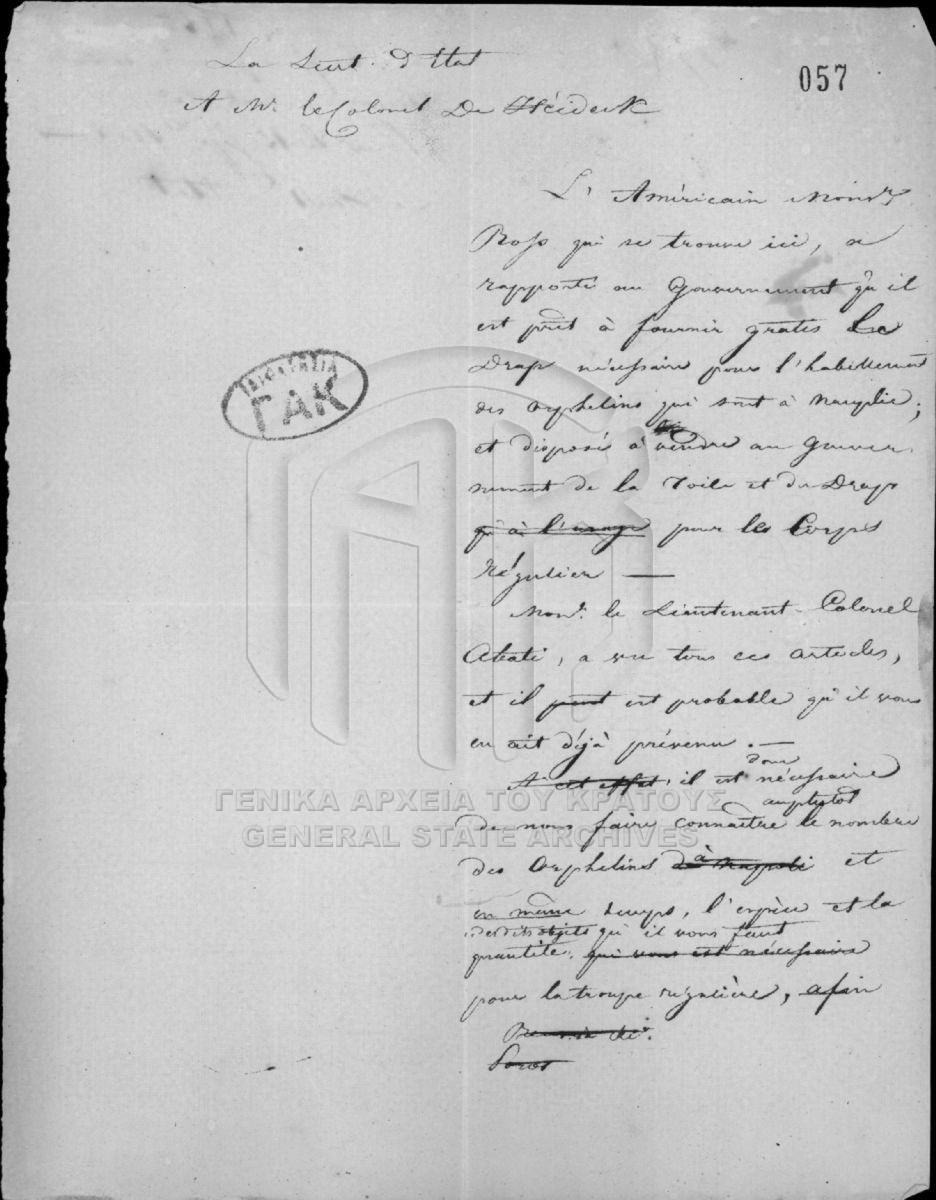 La Secrt. d'Etat
057
A Mr. le Colonel De Héideck
L'Américain Monsr
Ross qui se trouve ici, a
rapporté au Gouvernement qu'il
est prêt à fournir gratis le
Drap nécessaire pour l'habillement
des orphelins qui sont à Nauplie;
et disposé à vendre au Gouver-
nement de la Toile et du Drap
qu'à l'usage pour les Corps
Régulier —
Monr. le Lieutenant-Colonel
a vu tous ces articles,
et il peut est probable qu'il vous
en ait déjà prévenu. —
donc
A cet effet, il est nécessaire
au plutôt
de nous faire connaître le nombre
des Orphelins de à Napoli et
en même temps, l'espèce et la
desdits objets qu'il vous faut
quantité, qui vous est nécessaire
pour la troupe régulière, afin
Poros
ΓΑΚ
ΓΕΝΙΚΑ ΑΡΧΕΙΑ ΤΟΥ ΚΡΑΤΟΥΣ
GENERAL STATE ARCHIVES